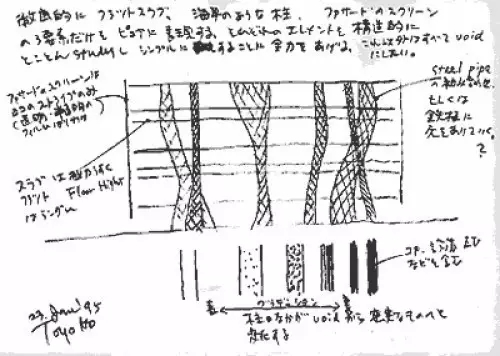 徹底的に フラットスラブ、海草のような柱、ファサードのスクリーン
の3要素だけを ピュアに 表現する。それぞれのエレメントを 構造的に
とことん studyし シンプルに することに 全力をあげる。これ以外はすべて void
にしたい。
ファサードのスクリーンは
ヨコのストライプのみ
(透明・半透明の
スラブは 極力うすく
フラット Floor Height
はランダム
steel pipe
の
もしくは
鉄柱に
穴をあけていく。
?
グラデーション
柱のなかが void から 充実なものへと
変化する
コア、設備 EV
などを含む
23. Jan '95
Toyo Ito